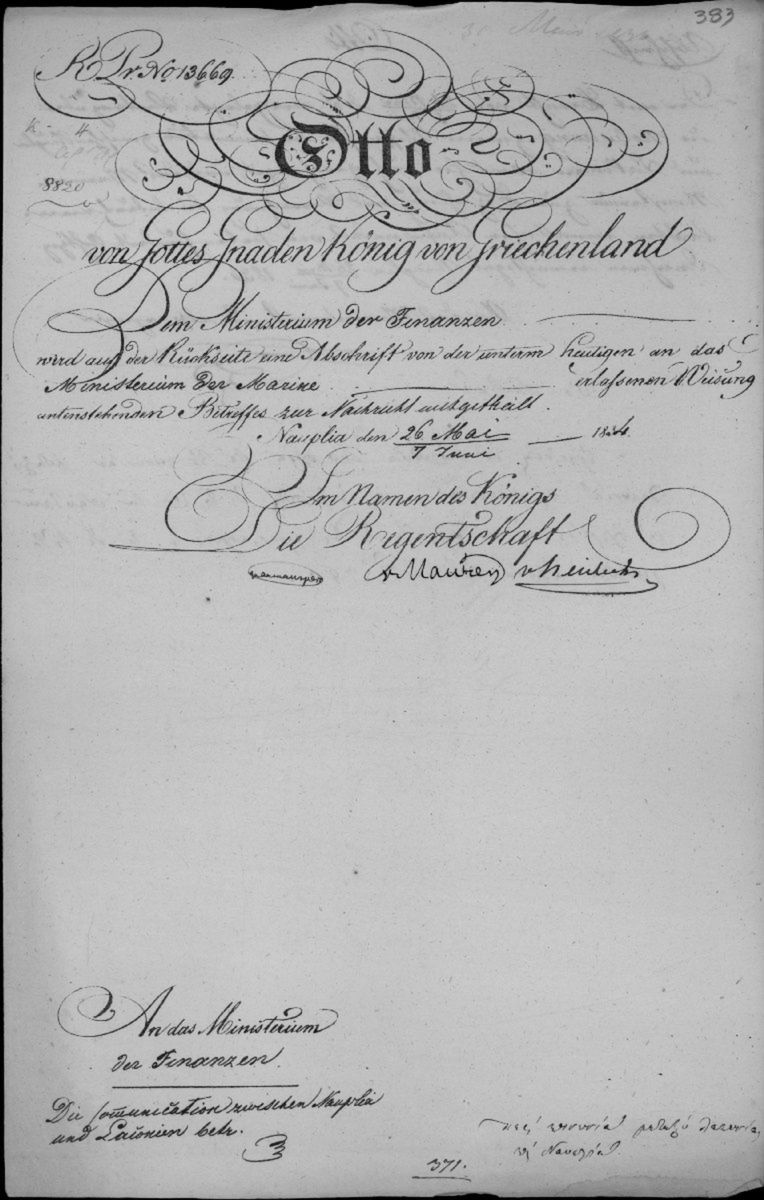 383
R Pr. No 13669
8820
Otto
von Gottes Gnaden König von Griechenland
Dem Ministerium der Finanzen
wird auf der Rückseite eine Abschrift von der unterm heutigen an das
Ministerium der Marine erlaßenen Weisung
untenstehenden Betreffes zur Nachricht mitgetheilt.
Nauplia den 26 Mai / 7 Juni 1834.
Im Namen des Königs
Die Regentschaft
v Maurer
An das Ministerium
der Finanzen.
Die Communication zwischen Nauplia
und Laconien betr.
μεταξύ
Ναυπλία
371.